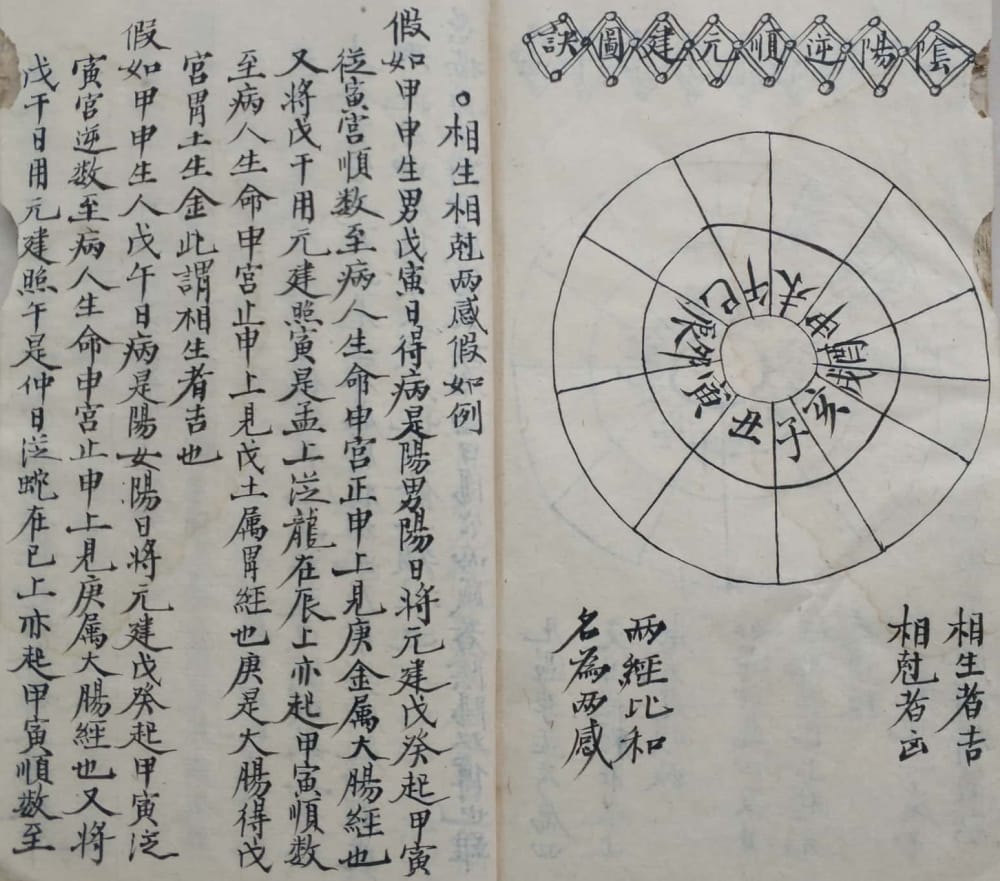 陰陽逆順元建圖訣
午
未
申
酉
戌
亥
子
丑
寅
卯
辰
巳
相生者吉
相尅者凶
兩經比和
名為兩感
。相生相尅兩感假如例
假如甲申生男戊寅日得病是陽男陽日将元建戊癸起甲寅
從寅宫順数至病人生命申宫正申上見庚金属大腸經也
又将戊干用元建照寅是孟上泛龍在辰上亦起甲寅順数
至病人生命申宮止申上見戊土属胃經也庚是大腸得戊
宮胃土生金此謂相生者吉也
假如甲申生人戊午日病是陽女陽日将元建戊癸起甲寅泛
寅宫逆数至病人生命申宫止申上見庚属大腸經也又将
戊干日用元建照午是仲日泛蛇在巳上亦起甲寅順数至